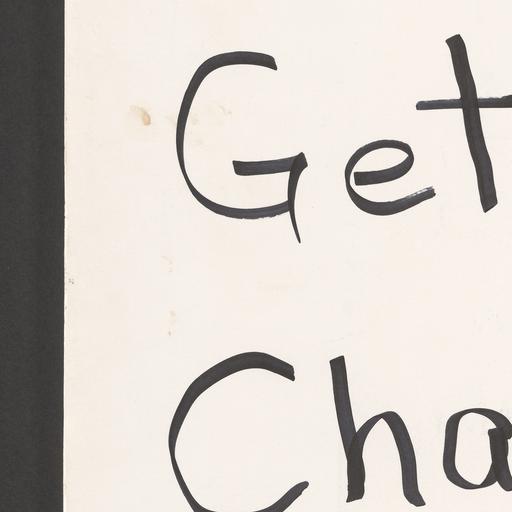 Get
Cha